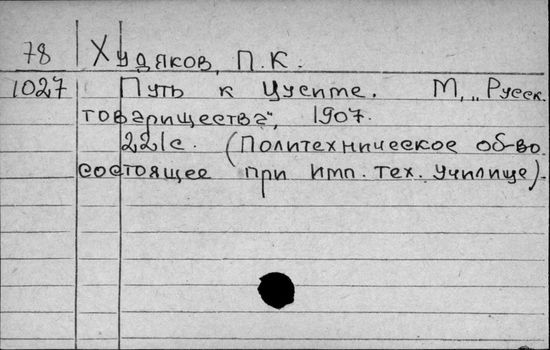 78 Худяков, П.К.
1027 Путь к Цусиме. М, „Русск.
товарищества", 1907.
221с. (Политехническое об-во.
состоящее при Имп. тех. училище).